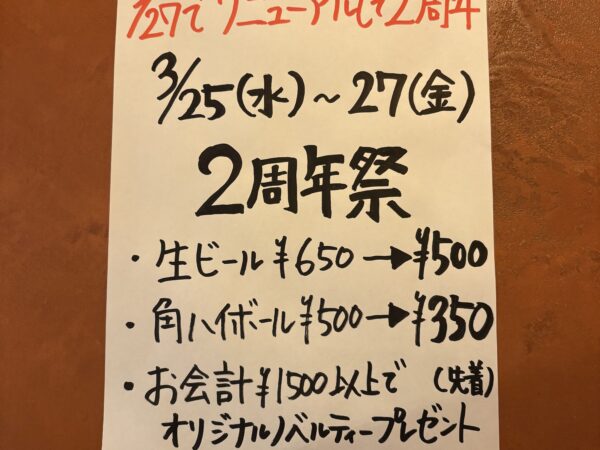 3/27でリニューアルして2周年
3/25(水)~27(金)
2周年祭
・生ビール¥650→¥500
・角ハイボール¥500→¥350
・お会計¥1500以上で(先着)
オリジナルノベルティープレゼント